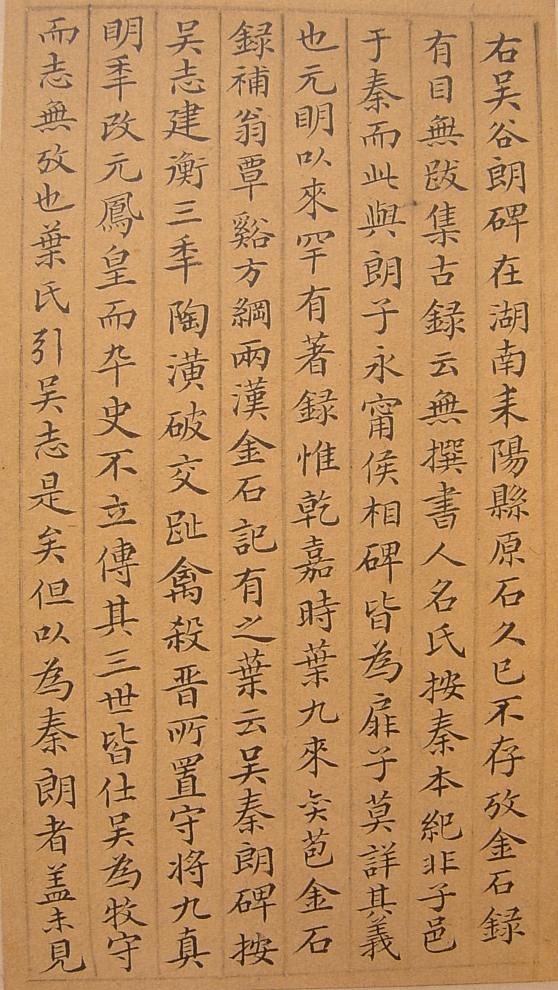 右吴谷朗碑在湖南耒陽縣原石久已不存攷金石録
有目無跋集古録云無撰書人名氏按秦本紀非子邑
于秦而此與朗子永甯侯相碑皆為扉子莫詳其義
也元明以來罕有著録惟乾嘉時葉九來奕苞金石
録補翁覃谿方綱兩漢金石記有之葉云吴秦朗碑按
吴志建衡三秊陶潢破交趾禽殺晋所置守将九真
明秊改元鳳皇而卒史不立傳其三世皆仕吴為牧守
而志無攷也葉氏引吴志是矣但以為秦朗者盖未見